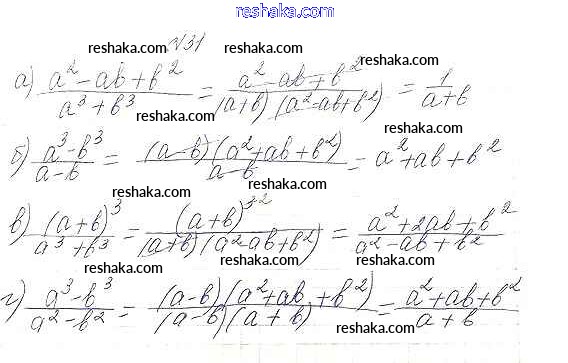 reshaka.com
reshaka.com №31 reshaka.com reshaka.com
а) (a² - ab + b²)/(a³ + b³) = (a² - ab + b²)/((a+b)(a² - ab + b²)) = 1/(a+b)
reshaka.com reshaka.com
б) (a³ - b³)/(a - b) = ((a - b)(a² + ab + b²))/(a - b) = a² + ab + b²
reshaka.com reshaka.com reshaka.com
в) (a + b)³/(a³ + b³) = (a + b)³ ²/((a+b)(a² - ab + b²)) = (a² + 2ab + b²)/(a² - ab + b²)
reshaka.com reshaka.com reshaka.com
г) (a³ - b³)/(a² - b²) = ((a - b)(a² + ab + b²))/((a - b)(a + b)) = (a² + ab + b²)/(a + b)
reshaka.com reshaka.com